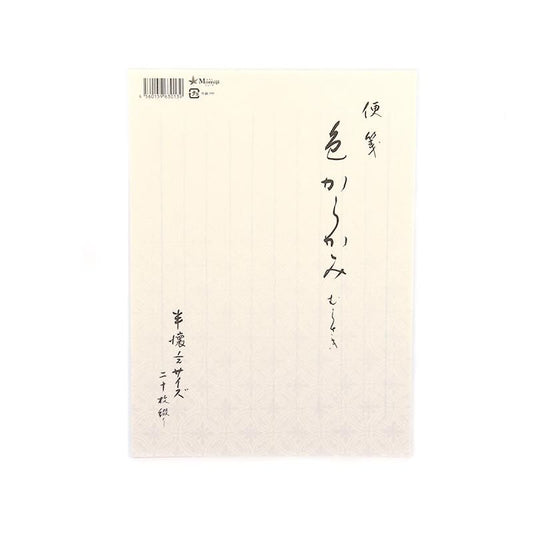 便箋
色からかみ
むらさき
半懐紙サイズ
二十枚綴り